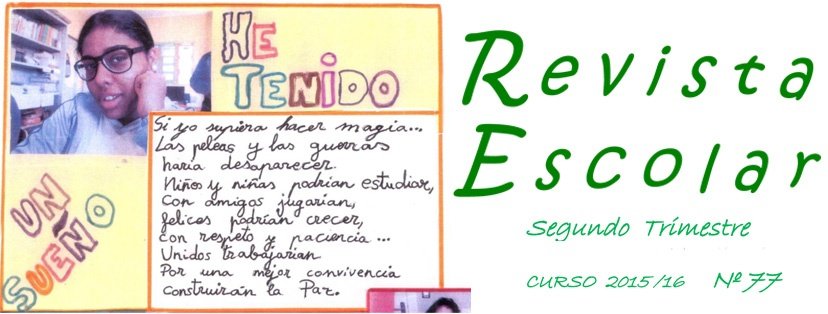 HE
TENIDO
UN
SUEÑO
Si yo supiera hacer magia...
Las peleas y las guerras
haría desaparecer.
Niños y niñas podrían estudiar,
Con amigos jugarían,
felices podrían crecer,
con respeto y paciencia...
Unidos trabajarían
Por una mejor convivencia
construirán la Paz.
Revista
Escolar
Segundo Trimestre
CURSO 2015/16 Nº 77